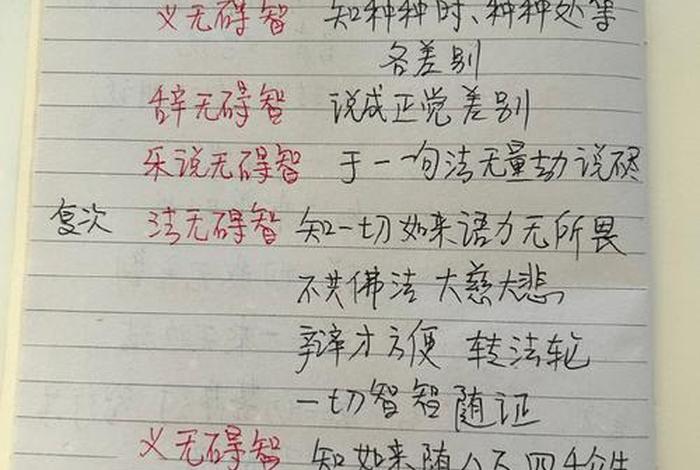 义无碍智 知种种时、种种处等
各差别
辞无碍智 说成正觉差别
乐说无碍智 于一一句法无量劫说
复次 法无碍智 知一切如来语力无所畏
不共佛法 大慈大悲
辩才方便 转法轮
一切智智随证
义无碍智 知如来随八万四千